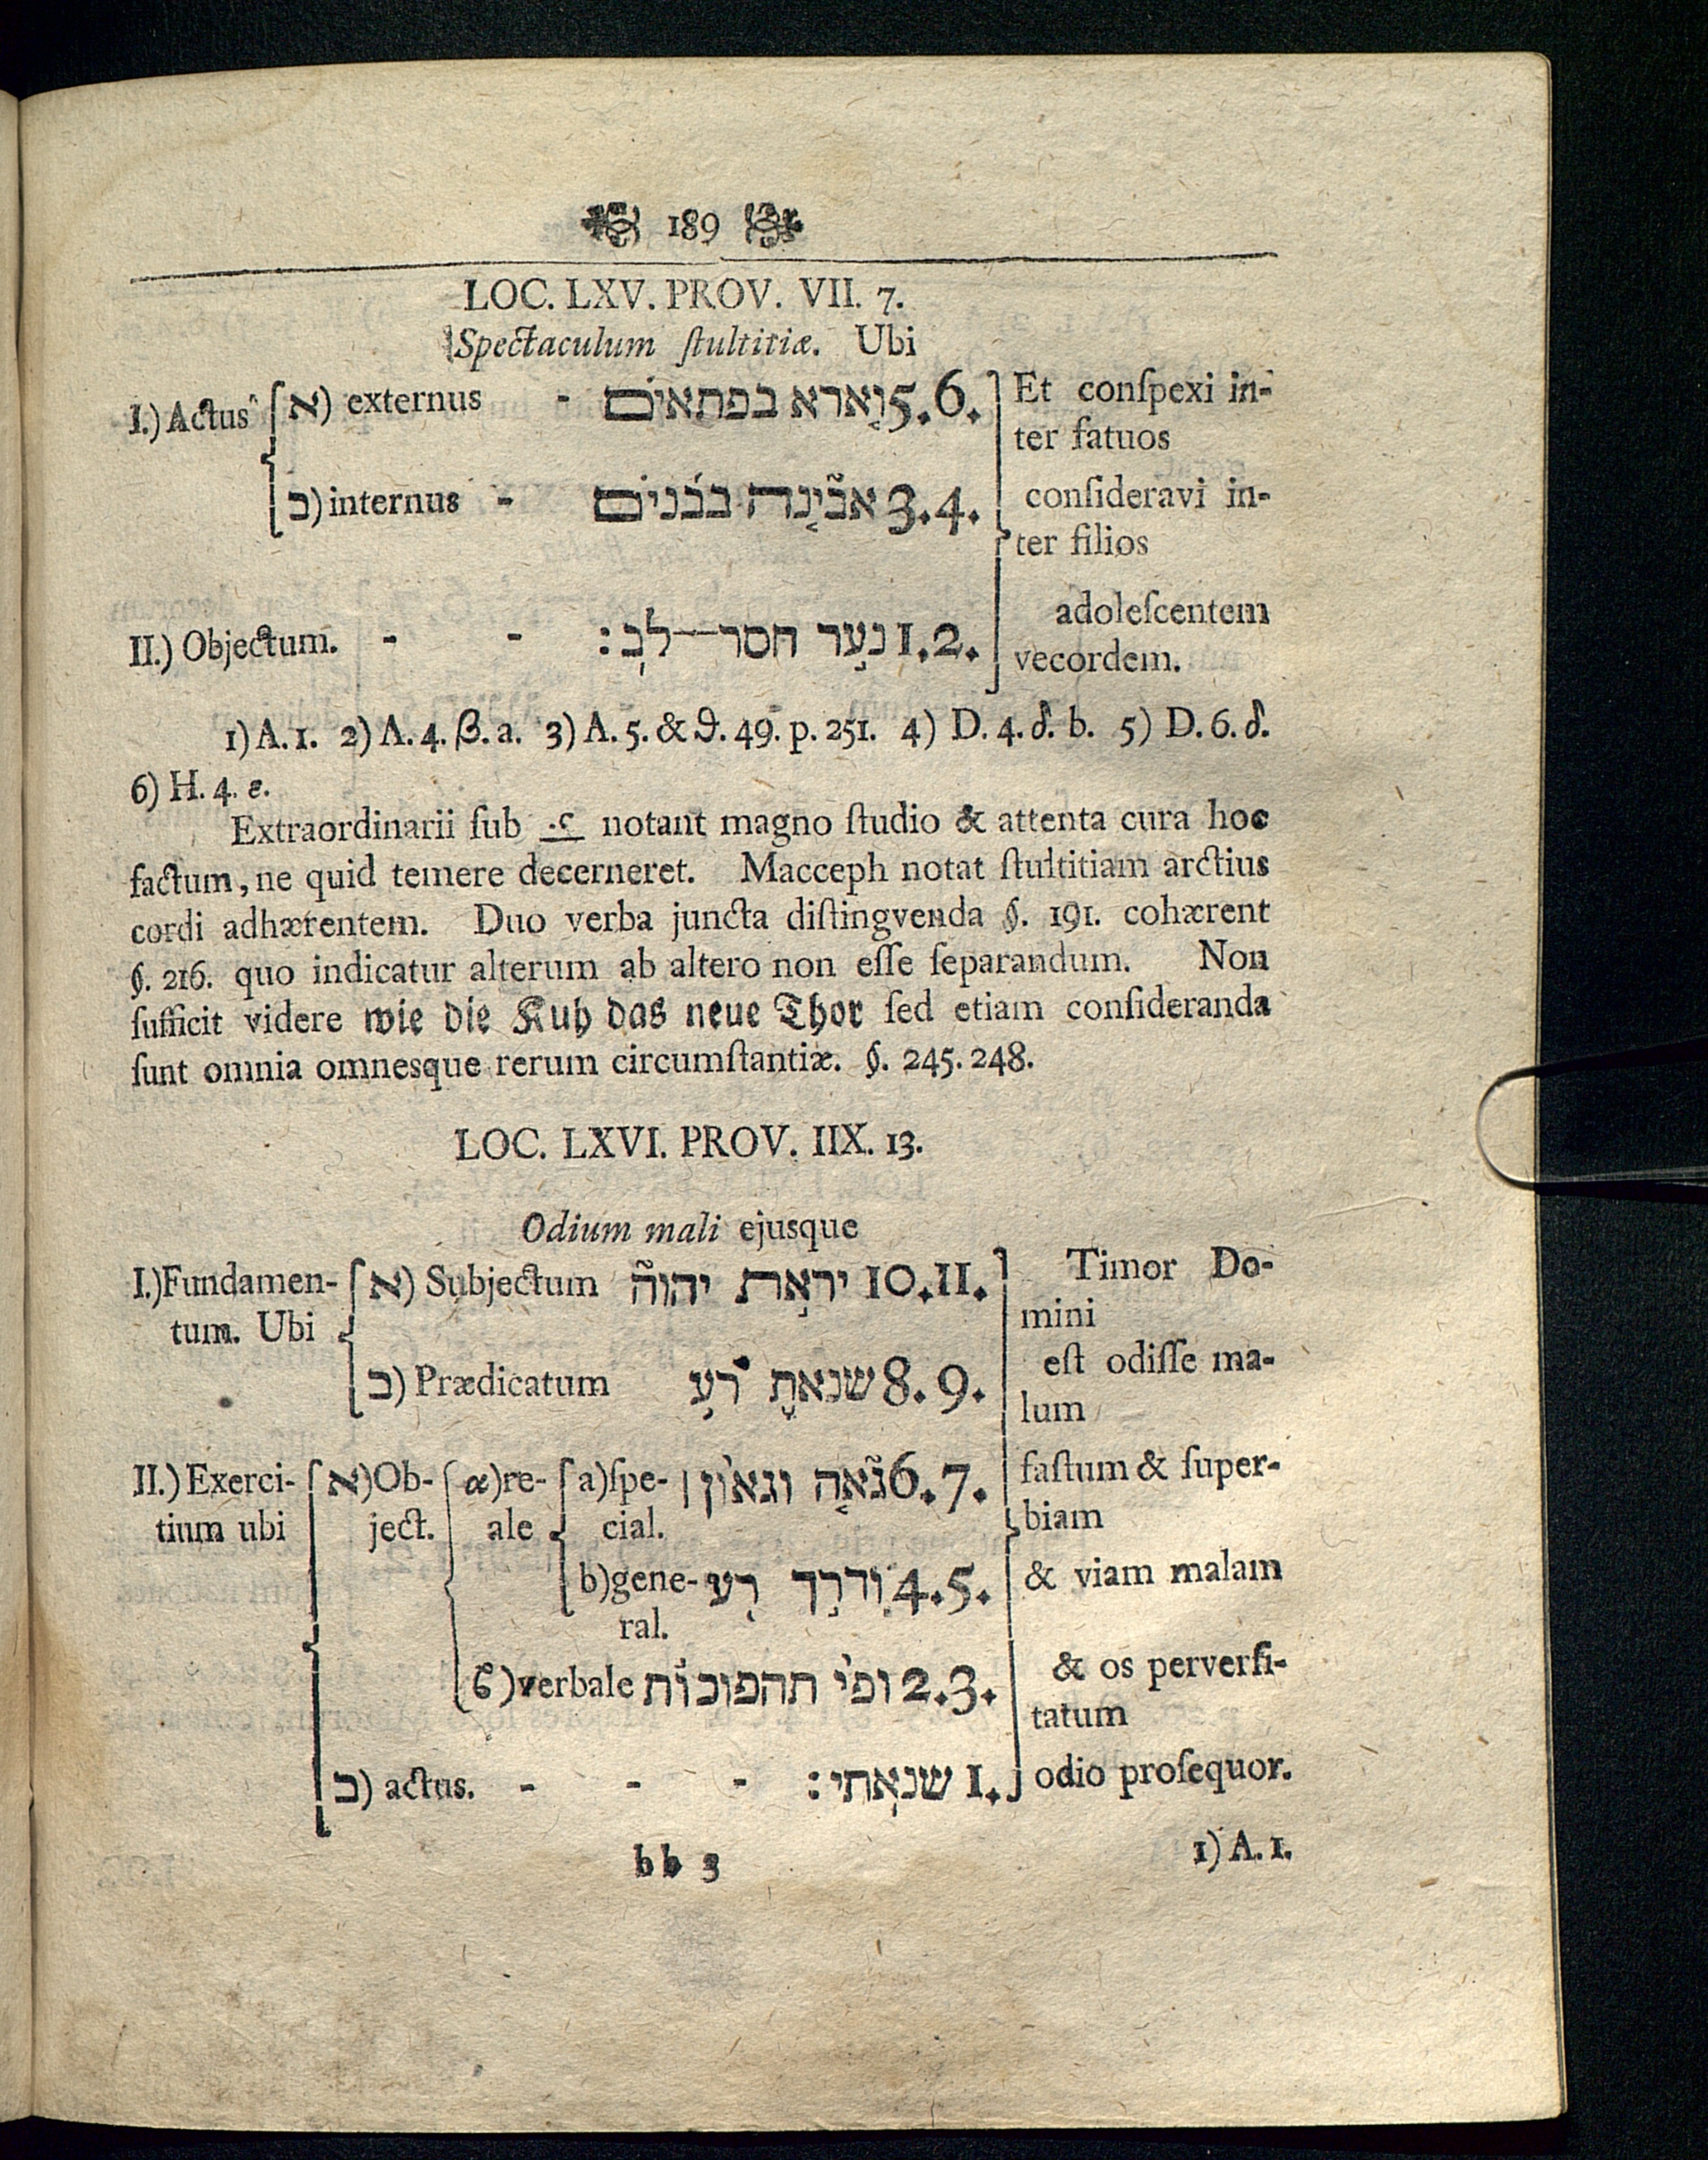 189
LOC. LXV. PROV. VII. 7.
Spectaculum ſtultitiæ. Ubi
I.) Actus א) externus - וארא בפתאים 5.6. Et conſpexi in-
ter fatuos
ב) internus - אבינה בבנים 3.4. conſideravi in-
ter filios
II.) Objectum. - - נער חסר־לב: 1.2. adoleſcentem
vecordem.
1) A. 1. 2) A. 4. β. a. 3) A. 5. & ϑ. 49. p. 251. 4) D. 4. δ. b. 5) D. 6. δ.
6) H. 4. ε.
Extraordinarii ſub notant magno ſtudio & attenta cura hoc
factum, ne quid temere decerneret. Macceph notat ſtultitiam arctius
cordi adhærentem. Duo verba juncta diſtingvenda §. 191. cohærent
§. 216. quo indicatur alterum ab altero non eſſe ſeparandum. Non
ſufficit videre wie die Kuh das neue Thor ſed etiam conſideranda
ſunt omnia omnesque rerum circumſtantiæ. §. 245. 248.
LOC. LXVI. PROV. IIX. 13.
Odium mali ejusque
I.) Fundamen- א) Subjectum יראת יהוה 10.11. Timor Do-
tum. Ubi mini
ב) Prædicatum שנאת רע 8.9. eſt odiſſe ma-
lum
II.) Exerci- א) Ob- α) re- a) ſpe- גאה וגאון׀ 6.7. faſtum & ſuper-
tium ubi ject. ale cial. biam
b) gene- ודרך רע 4.5. & viam malam
ral.
ϐ) verbale ופי תהפוכות 2.3. & os perverſi-
tatum
ב) actus. - - - שנאתי: 1. odio proſequor.
bb 3 1) A. 1.